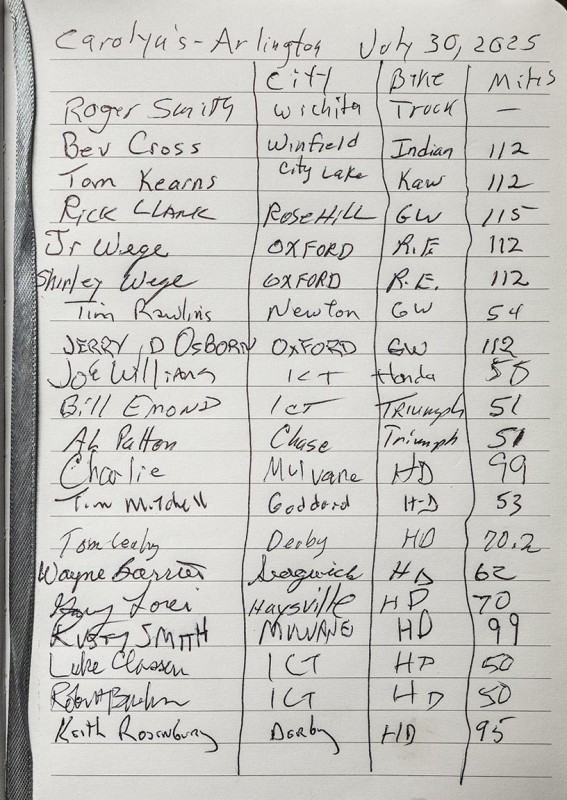 Carolyn's - Arlington July 30, 2025
City Bike Miles
Roger Smith Wichita Truck —
Bev Cross Winfield City Lake Indian 112
Tom Kearns Kaw 112
Rick Clark Rose Hill GW 115
Jr Wege OXFORD R.E. 112
Shirley Wege OXFORD R.E. 112
Tim Rawlins Newton GW 54
JERRY D OSBORN OXFORD GW 112
Joe Williams ICT Honda 50
Bill EMOND ICT TRIUMPh 51
AL Patton Chase Triumph 51
Charlie Mulvane HD 99
Tim Mitchell Goddard H-D 53
Tom Leahy Derby HD 70.2
Wayne Barrier Sedgwick HD 62
Haysville HD 70
Rusty SMITH MULVANE HD 99
Luke Classen ICT HD 50
Robert ICT HD 50
Keith Rosenburg Derby HD 95